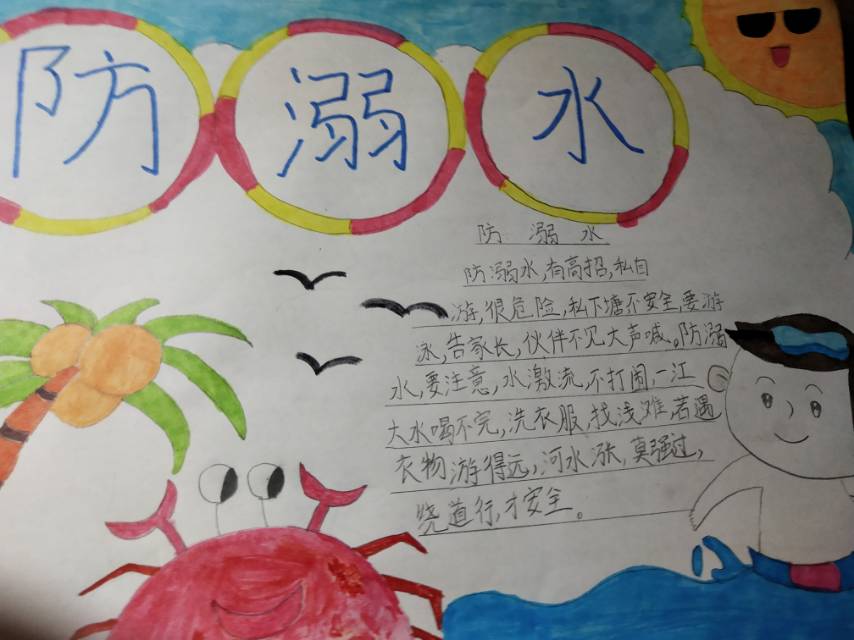 防溺水
防溺水
防溺水,有高招,私自
游,很危险,私下塘不安全,要游
泳,告家长,伙伴不见大声喊。防溺
水,要注意,水激流,不打闹,一江
大水喝不完,洗衣服,找浅难,若遇
衣物游得远,河水涨,莫强过,
绕道行,才安全。